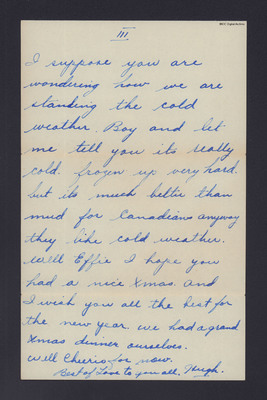 III
I suppose you are
wondering how we are
standing the cold
weather. Boy and let
me tell you its really
cold. frozen up very hard.
but its much better than
mud for Canadians anyway
they like cold weather.
Well Effie I hope you
had a nice Xmas. And
I wish you all the best for
the new year. we had a grand
Xmas dinner ourselves.
Well Cheerio for now.
Best of Love to you all. Hugh.